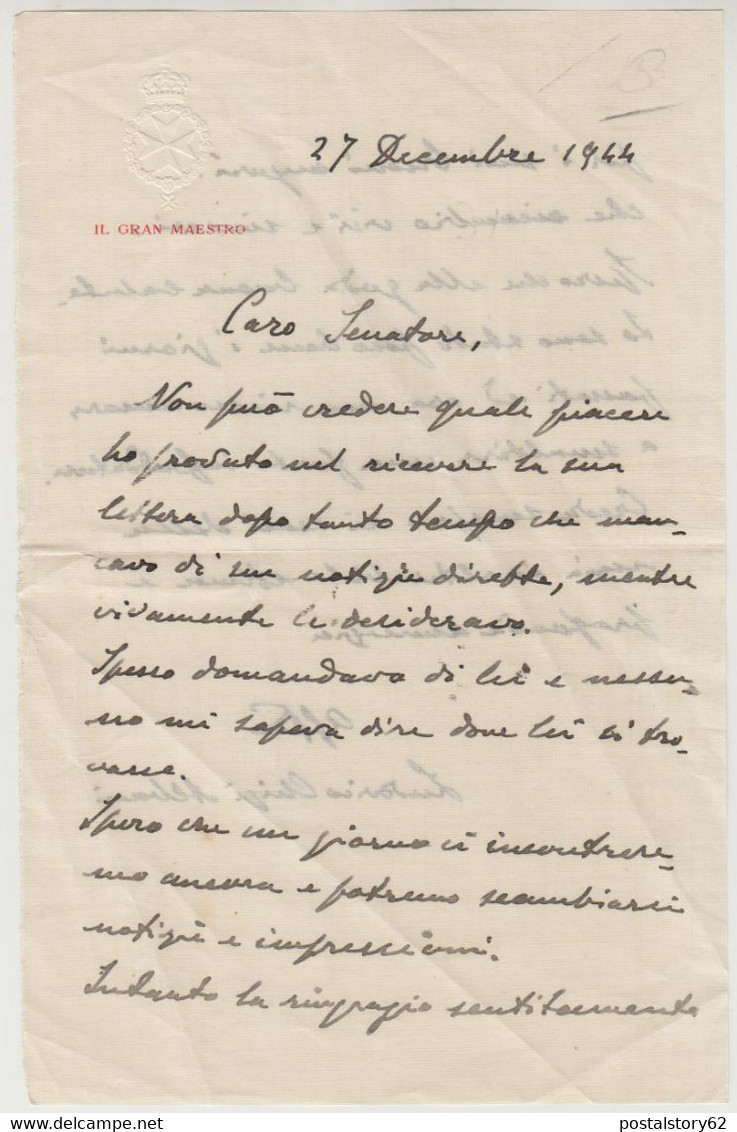 27 Decembre 1944
IL GRAN MAESTRO
Caro Senatore,
Non può credere quale piacere
ho produto nel ricevere la sua
lettera dopo tanto tempo che man-
cavo di sue notizie dirette, mentre
vivamente le desideravo.
Spesso domandava di lei e nessu-
no mi sapeva dire dove lei si tro-
vasse.
Spero che un giorno ci incontrere-
mo ancora e potremo scambiarci
notizie e impressioni.
Intanto la ringrazio sentitamente
delcampe.net
postalstory62